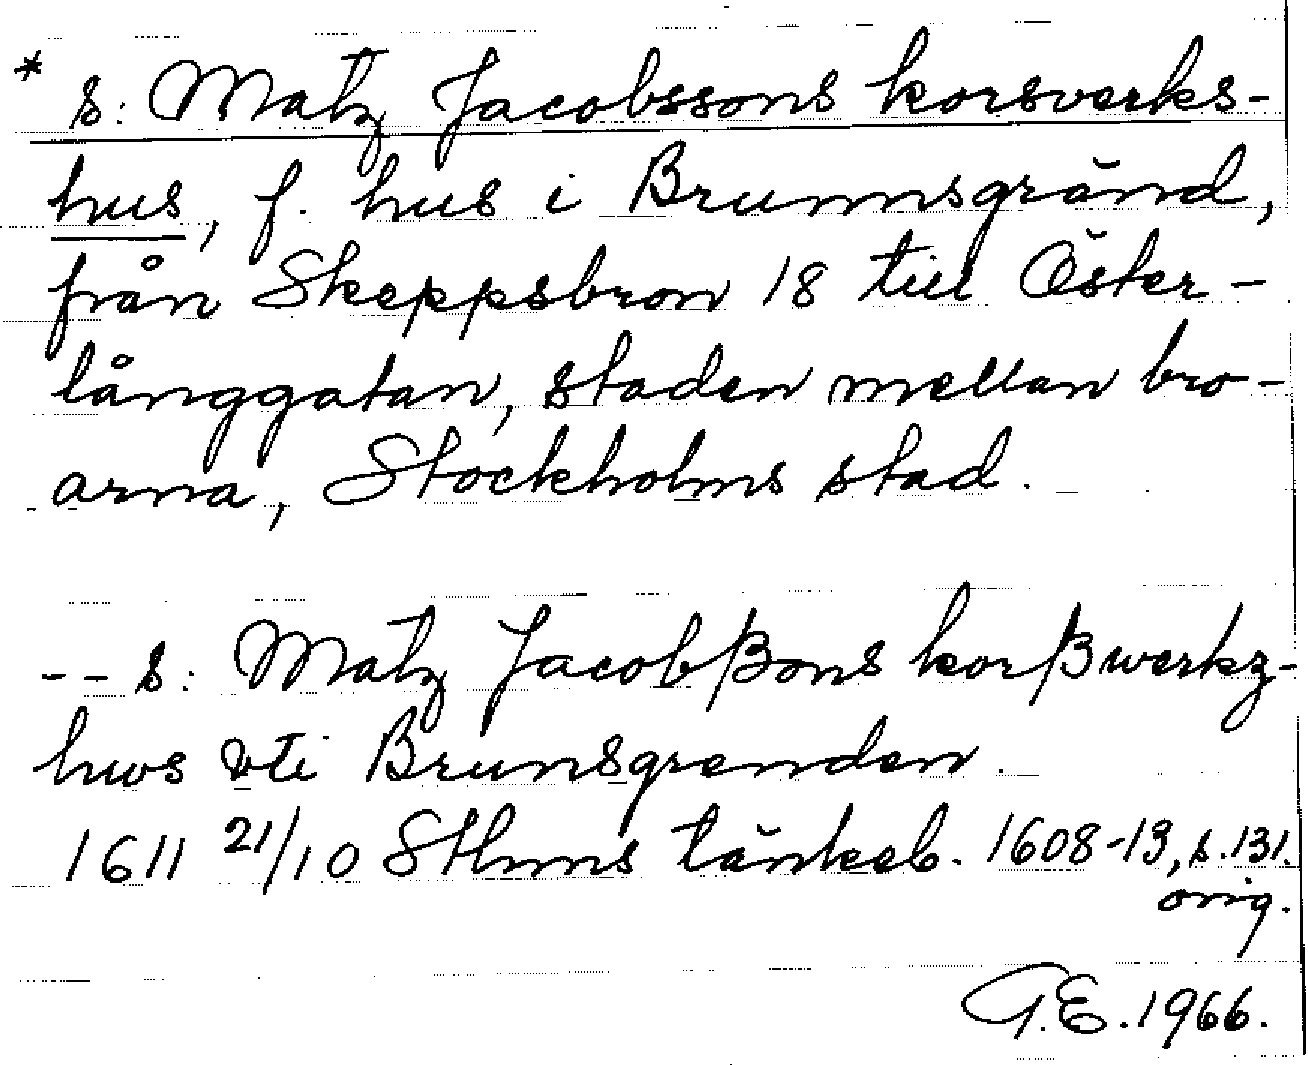 * s: Matz Jacobssons korsverks-
hus, f. hus i Brunnsgränd,
från Skeppsbron 18 till Öster-
långgatan, staden mellan bro-
arna, Stockholms stad.
-- s: Matz Jacobßons korßwerkz-
hws vti Brunsgrenden.
1611 21/10 Sthms tänkeb. 1608-13, s. 131.
orig.
G.E. 1966.